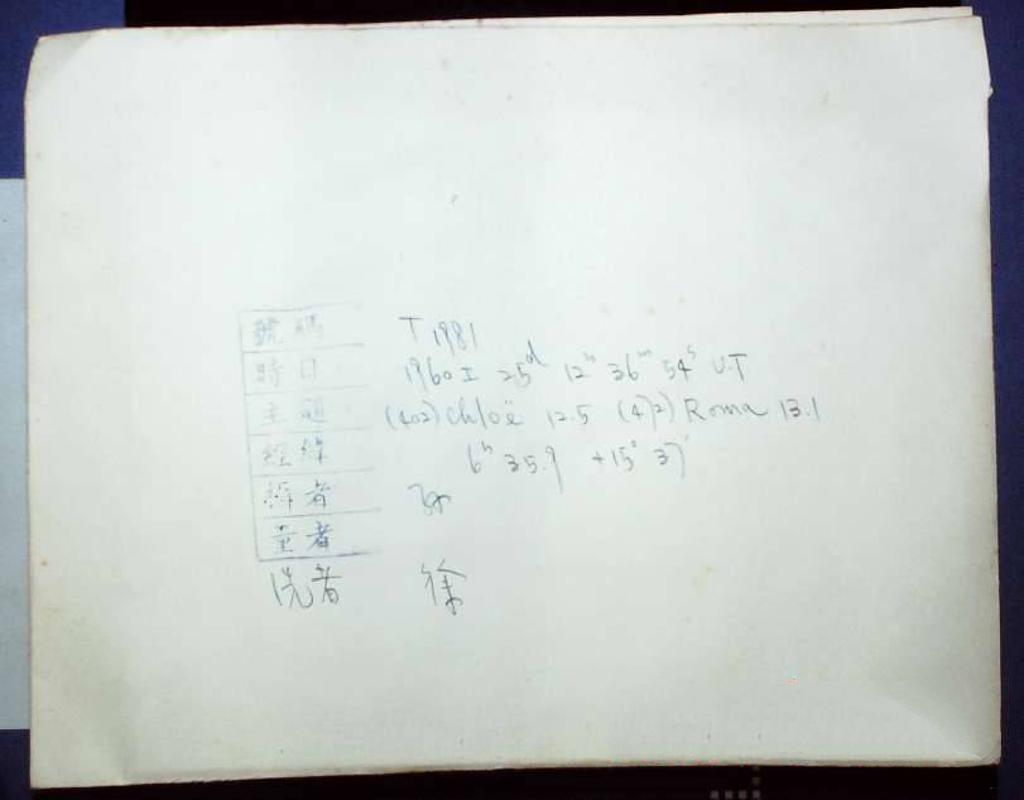 號碼 T 1981
時日 1960 I 25d 12h 36m 54s U.T
主題 (402) Chloë 12.5 (472) Roma 13.1
經緯 6h 35.9 +15° 37'
攝者
量者
洗者 徐